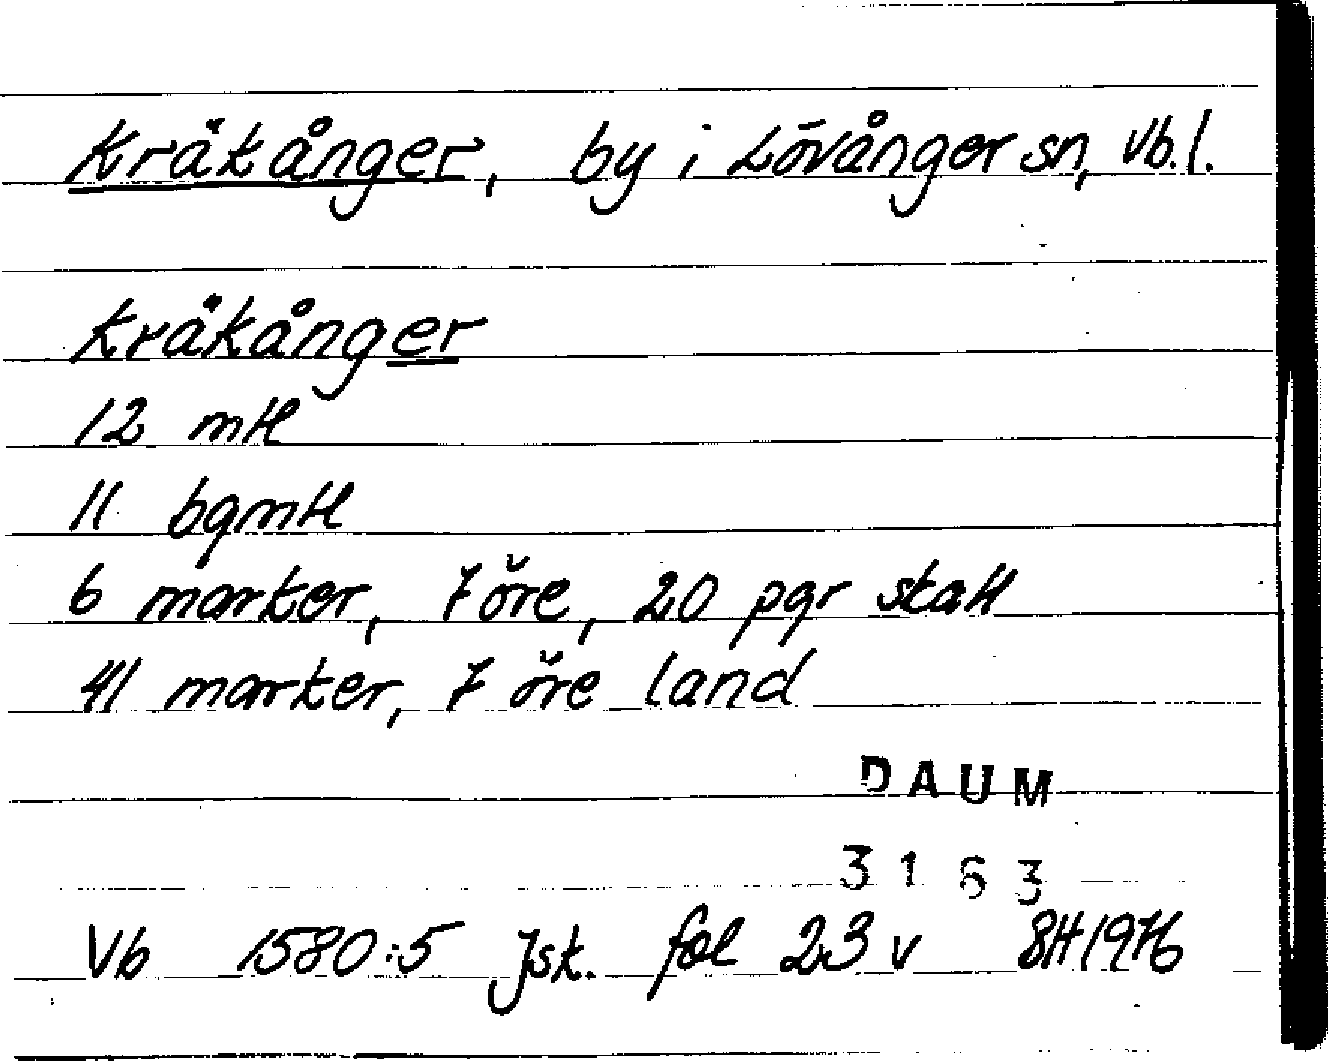 Kräkånger, by i Lövånger sn, Vb. l.
Kräkånger
12 mtl
11 bgmtl
6 marker, 7 öre, 20 pgr skatt
41 marker, 7 öre land
DAUM
3163
Vb 1580:5 Jsk. fol 23 v BH 1976